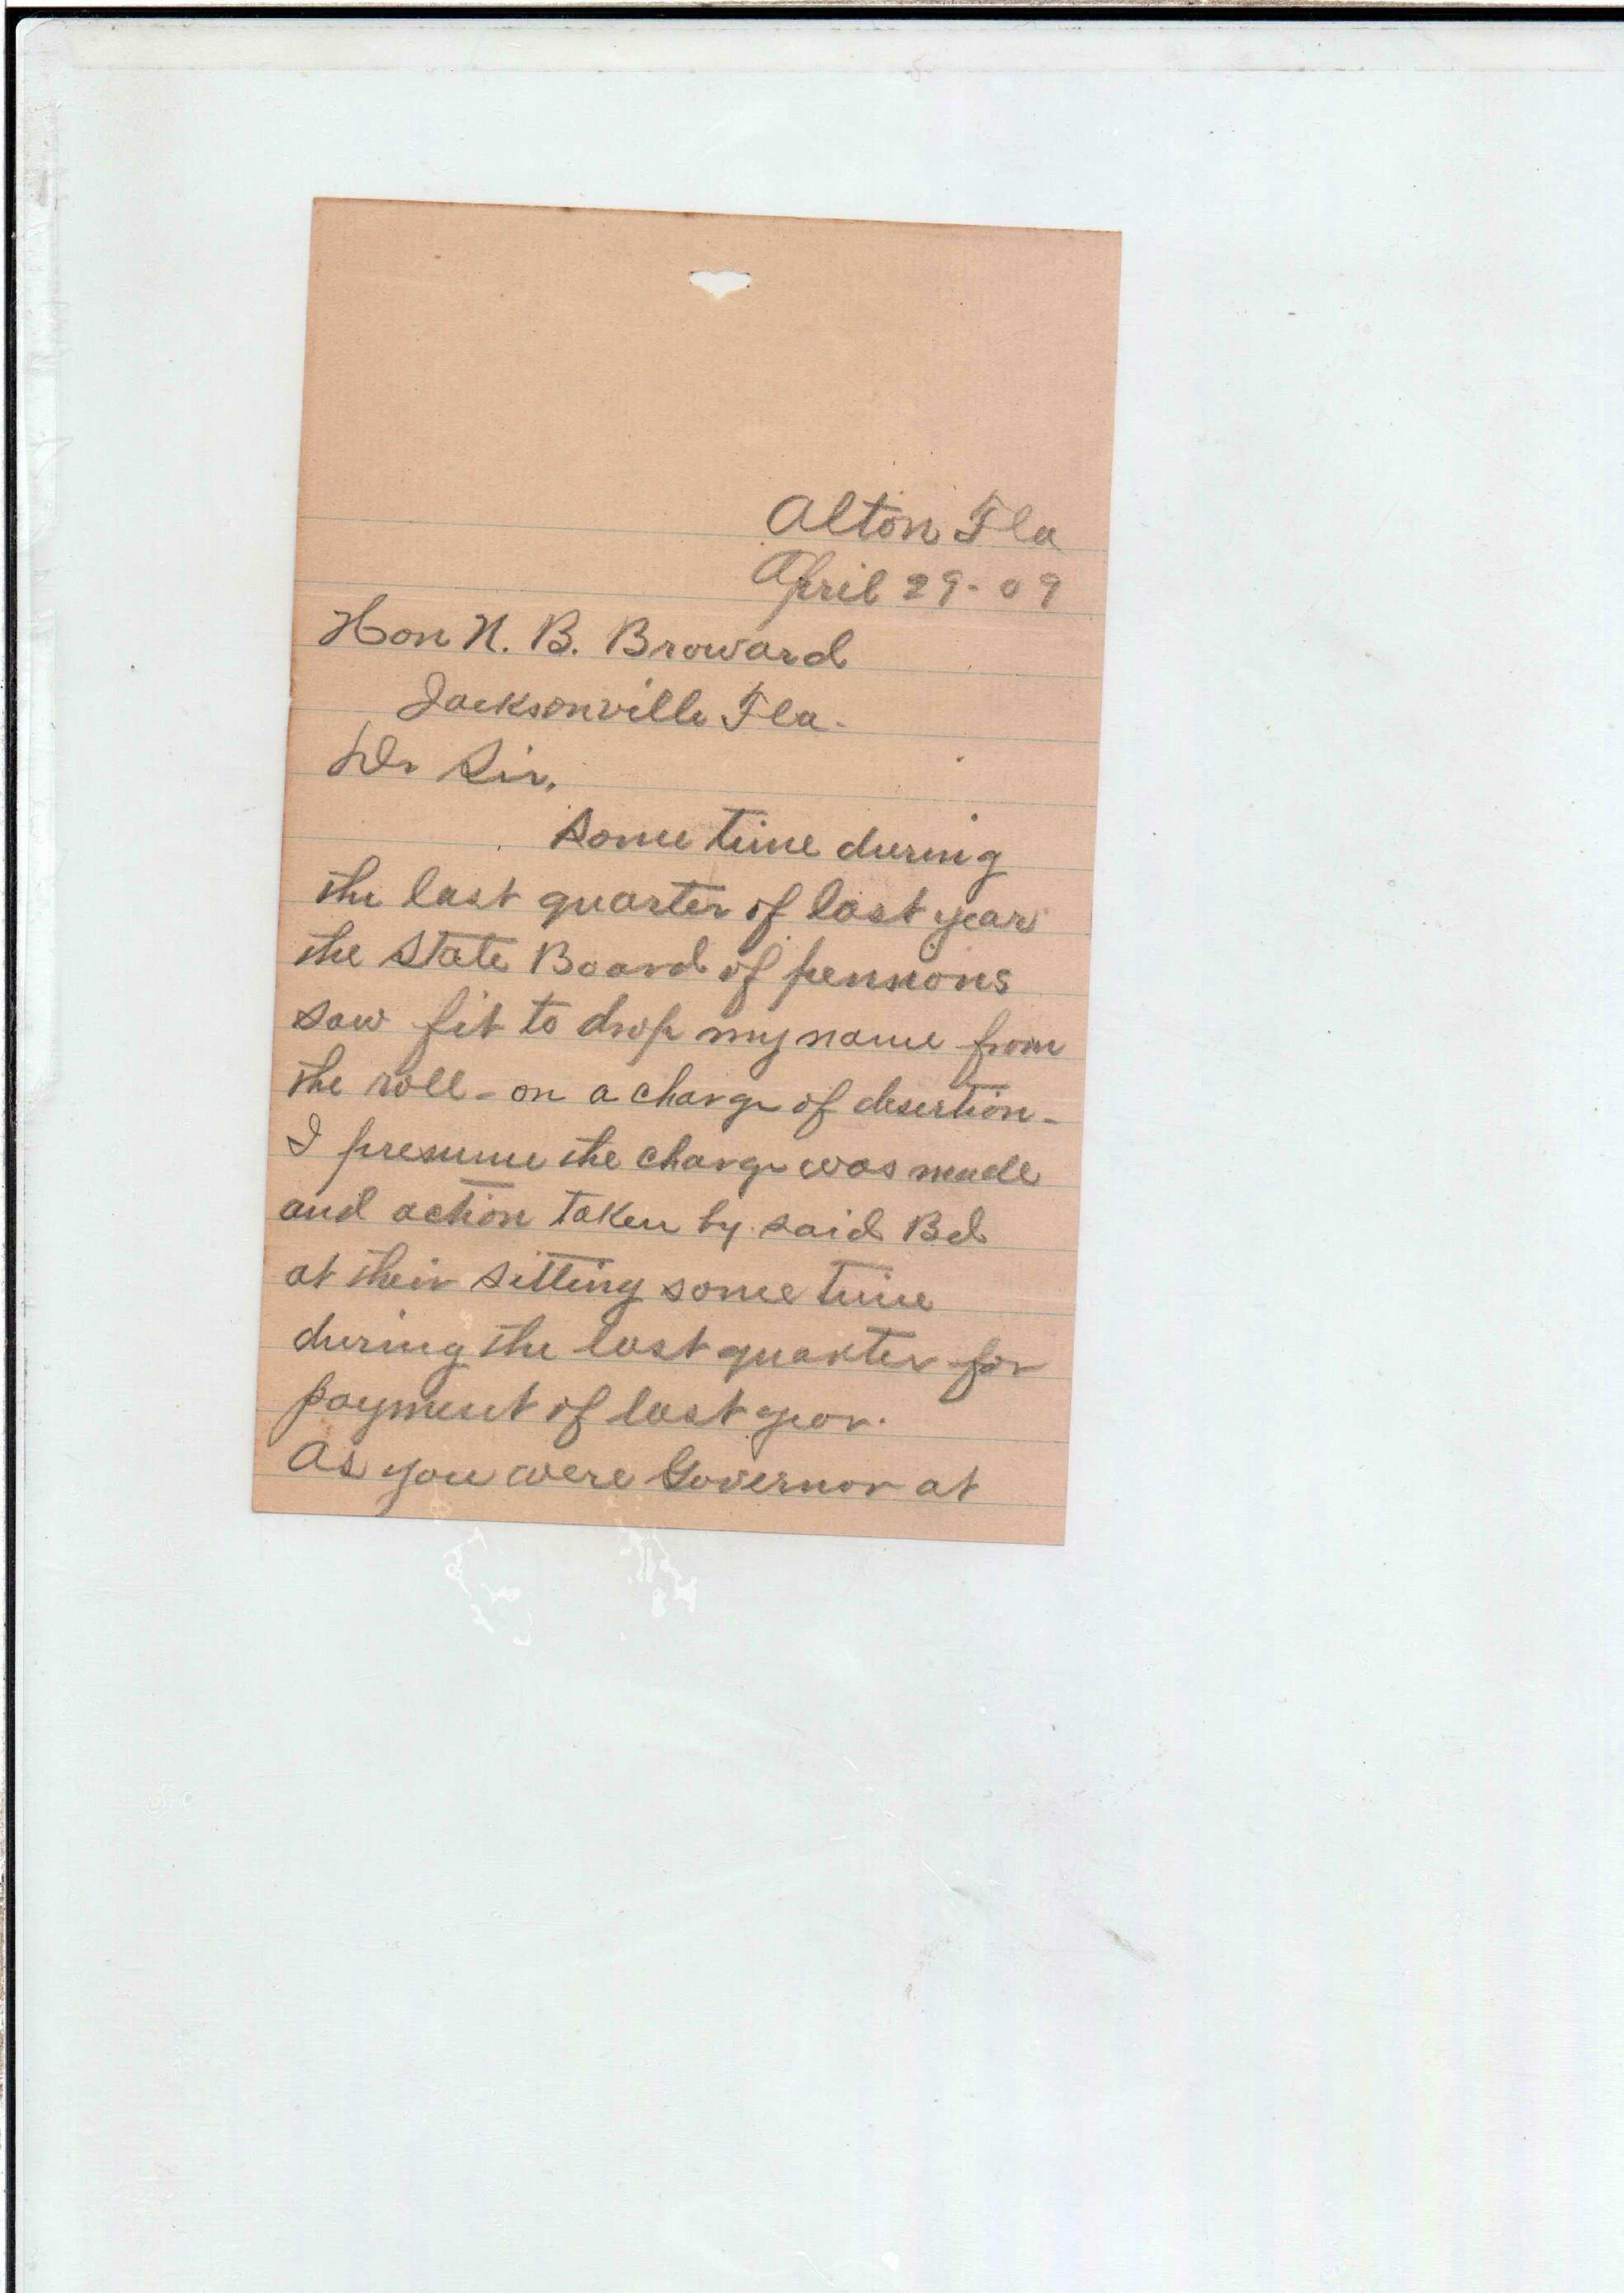 Alton Fla
April 29-09
Hon N. B. Broward
Jacksonville Fla.
Dr Sir,
Some time during
the last quarter of last year
the State Board of pensions
saw fit to drop my name from
the roll - on a charge of desertion -
I presume the charge was made
and action taken by said Bd
at their sitting some time
during the last quarter for
payment of last year.
As you were Governor at